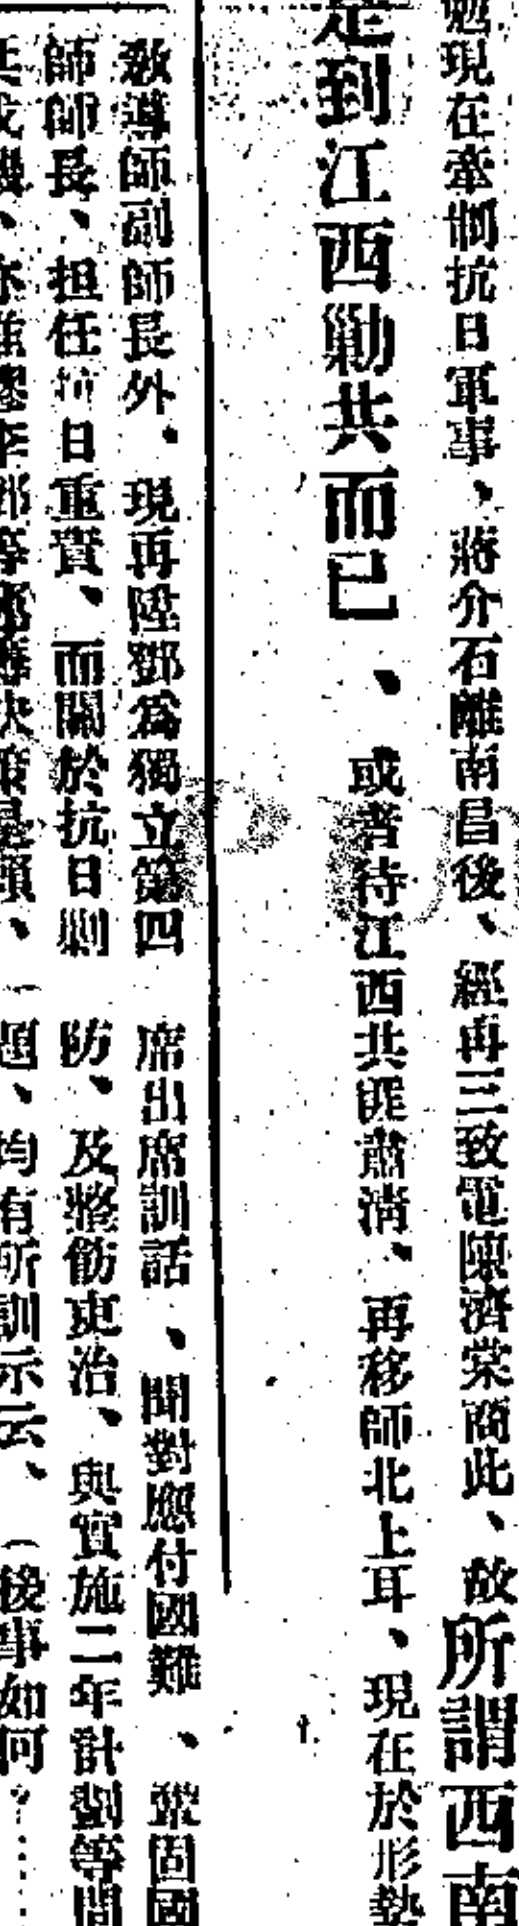 勉現在牽制抗日軍事、蔣介石離南昌後、經再三致電陳濟棠商此、故所謂西南
是到江西勦共而已、或者待江西共匪肅淸、再移師北上耳、現在於形勢
敎導師副師長外、現再陞鄧爲獨立第四
師師長、担任抗日重責、而關於抗日剿
席出席訓話、聞對應付國難、鞏固國
防、及整飭吏治、與實施二年計劃等問
題、均有所訓示云、（後事如何？……